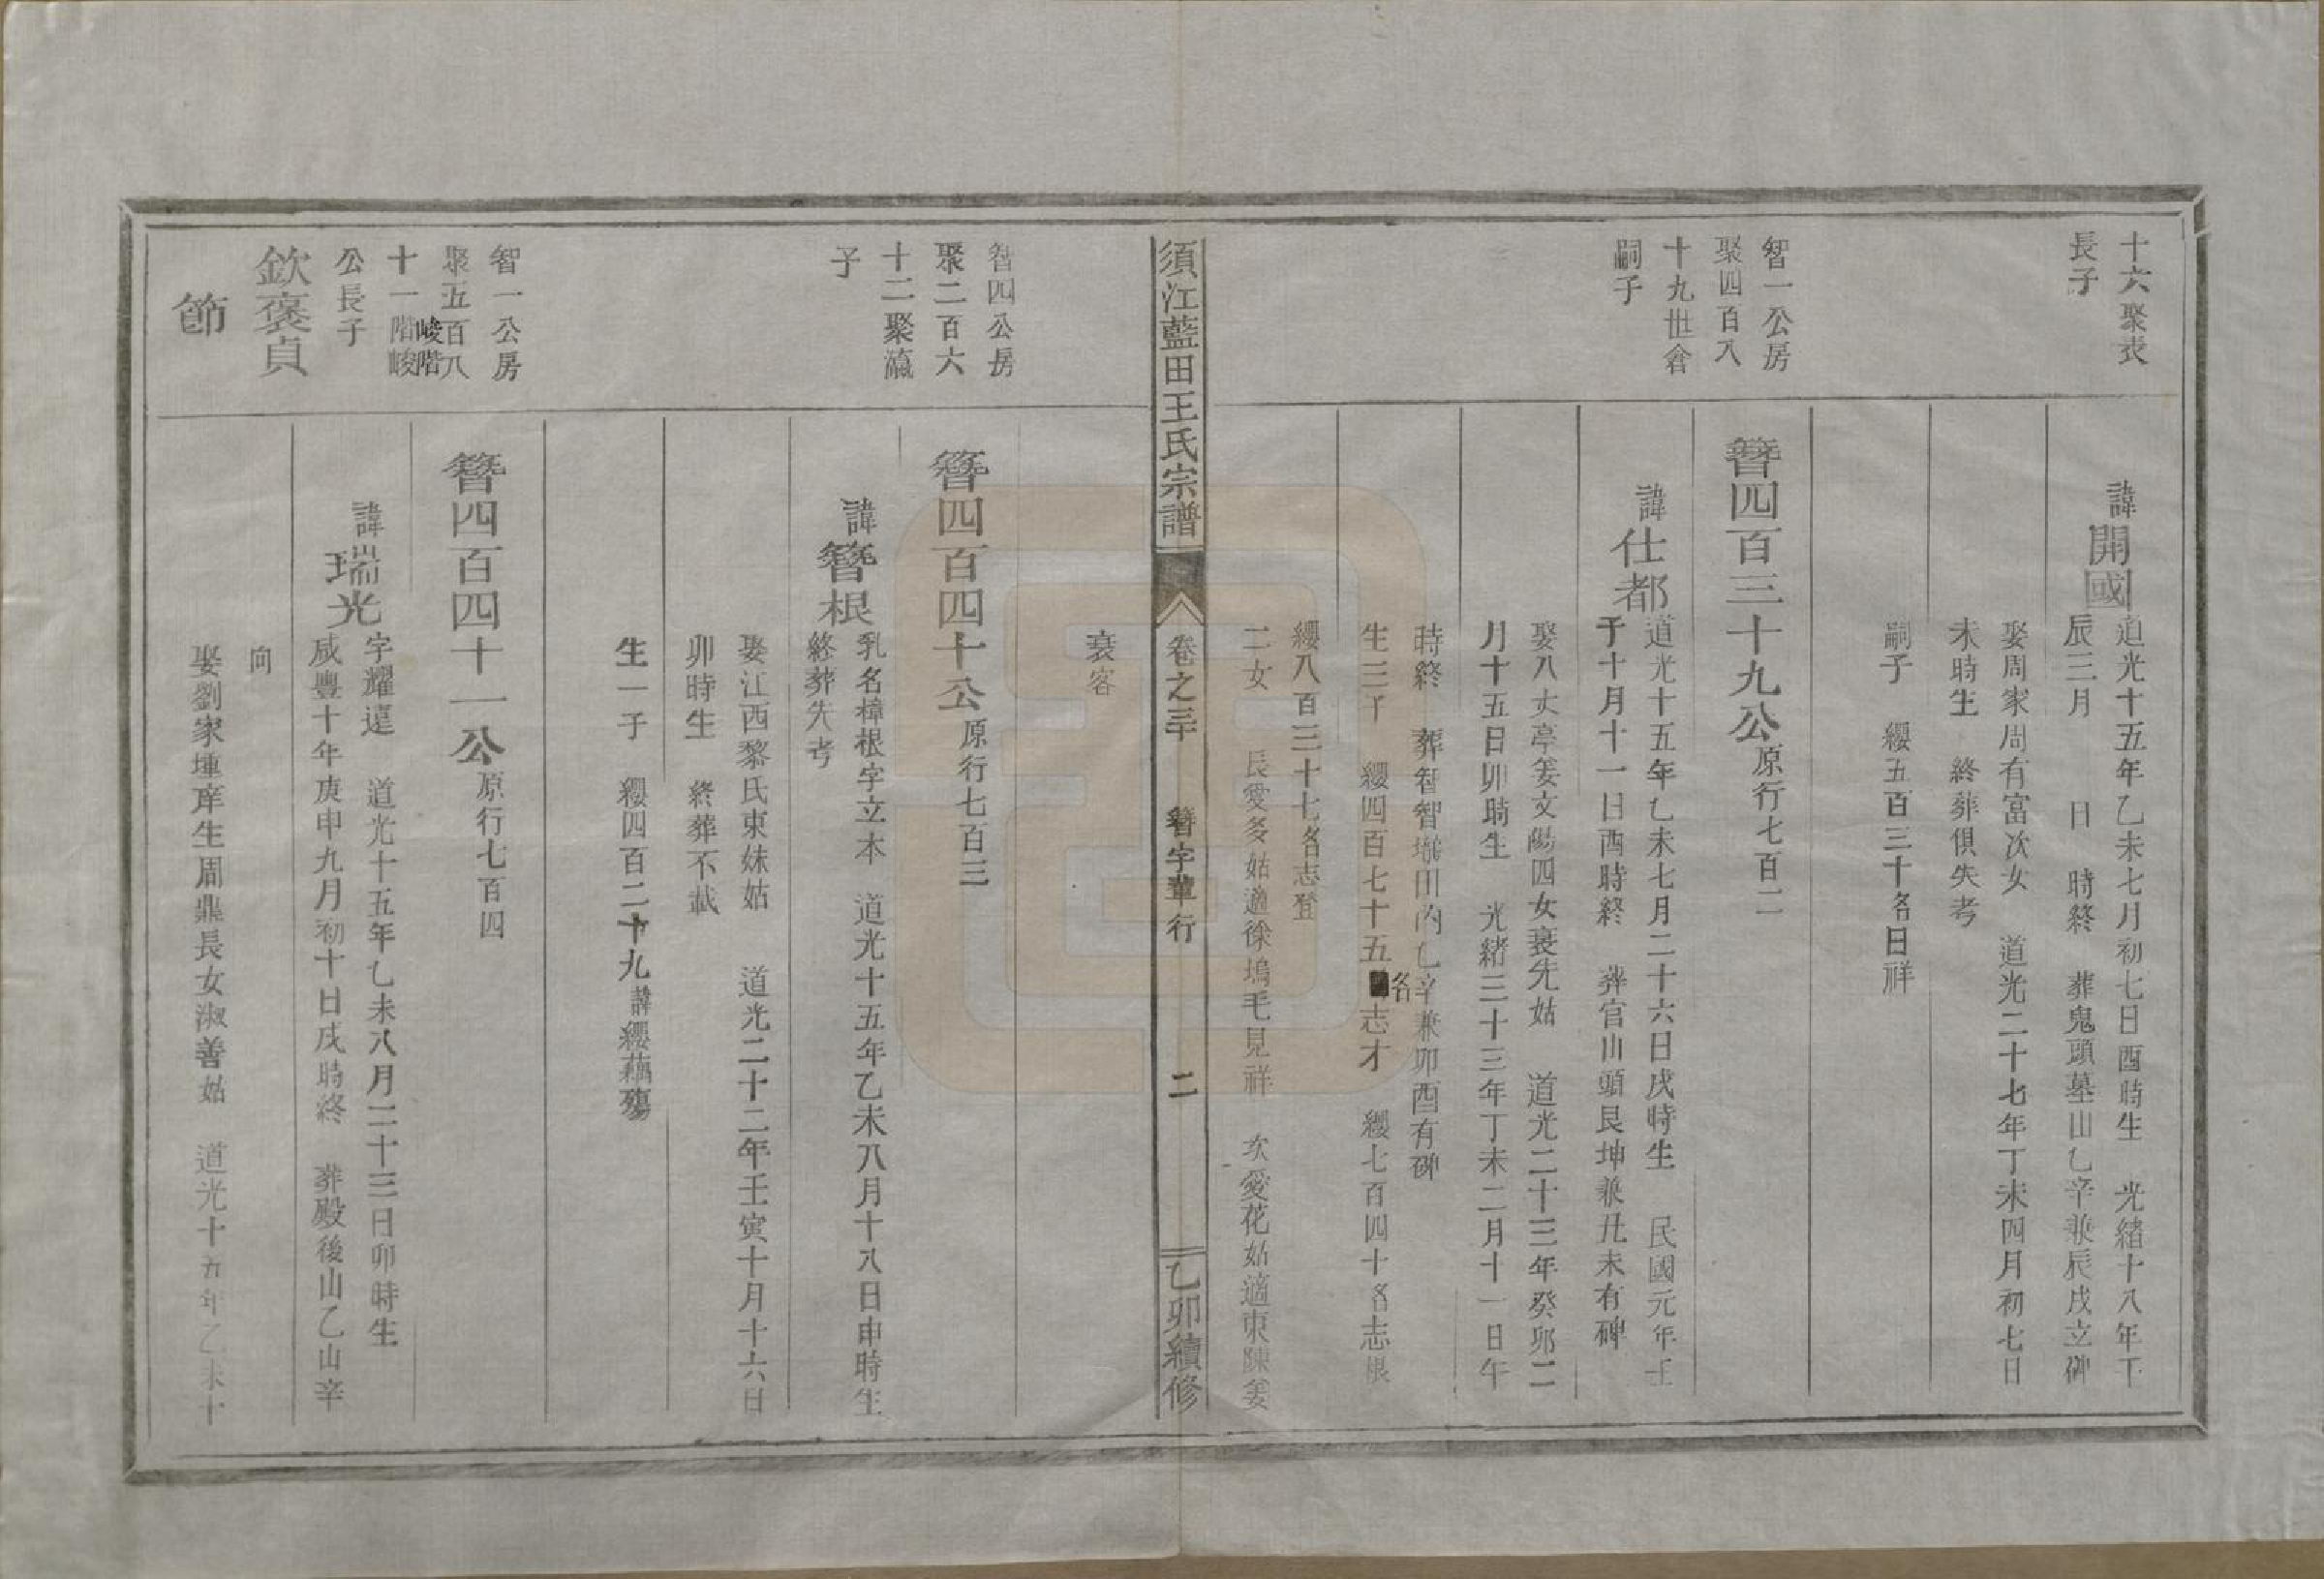 十六聚表
長子
諱開國
道光十五年乙未七月初七日酉時生　光緒十八年壬
辰三月　　日　時終　葬鬼頭墓山乙辛兼辰戌立碑
娶周家周有富次女　道光二十七年丁未四月初七日
未時生　終葬俱失考
嗣子　纓五百三十名日祥
智一公房
聚四百八
十九世倉
嗣子
簪四百三十九公原行七百二
諱仕都
道光十五年乙未七月二十六日戌時生　民國元年壬
子十月十一日酉時終　葬官山頭艮坤兼丑未有碑
娶八丈亭姜文陽四女裴先姑　道光二十三年癸卯二
月十五日卯時生　光緒三十三年丁未二月十一日午
時終　葬智智壠田內乙辛兼卯酉有碑
生三子　纓四百七十五名志才　纓七百四十名志根
纓八百三十七名志登
二女　長愛多姑適徐塢毛見祥　次愛花姑適東陳姜
衰容
須江藍田王氏宗譜　卷之三　簪字輩行　二　乙卯續修
智四公房
聚二百六
十二聚瀛
子
簪四百四十公原行七百三
諱簪根
乳名樟根字立本　道光十五年乙未八月十八日申時生
終葬失考
娶江西黎氏東妹姑　道光二十二年壬寅十月十六日
卯時生　終葬不載
生一子　纓四百二十九諱纓藕殤
智一公房
聚五百八
十一階峻
峻階
公長子
簪四百四十一公原行七百四
諱瑞光
字耀遠　道光十五年乙未八月二十三日卯時生
咸豐十年庚申九月初十日戌時終　葬殿後山乙山辛
向
欽褒貞
節
娶劉家堙庠生周鼎長女淑善姑　道光十五年乙未十